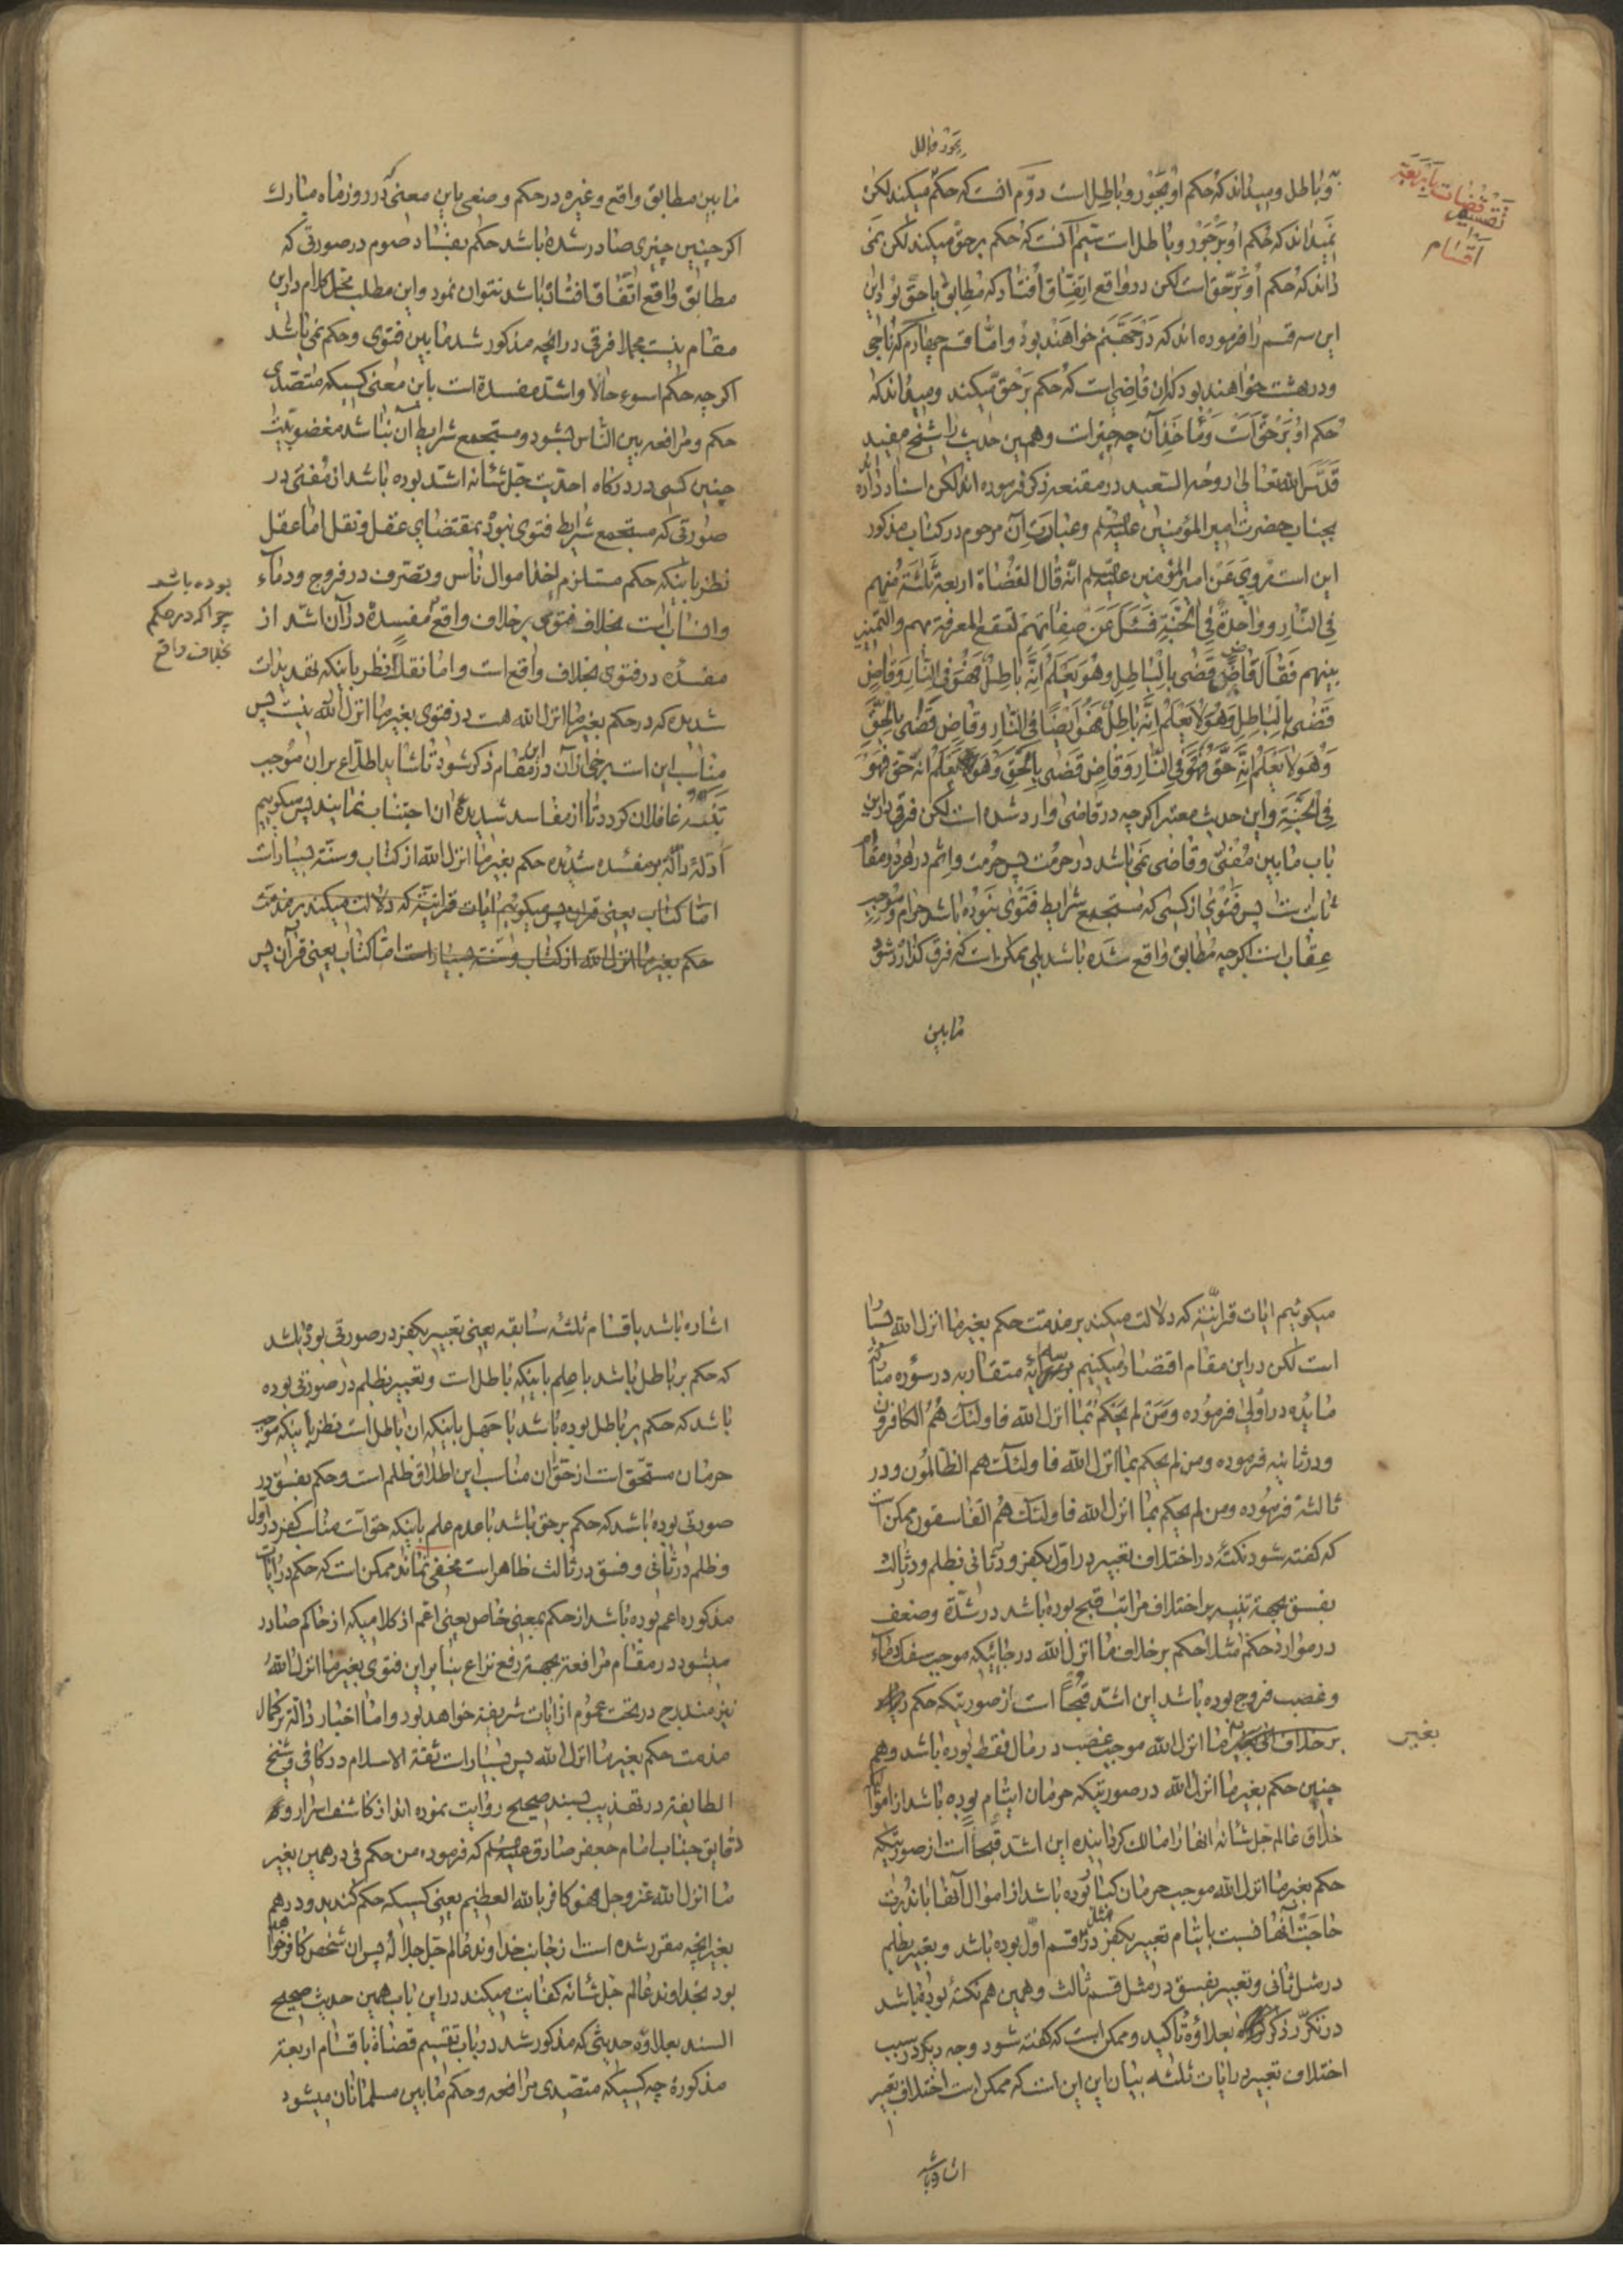 تقسیم قضات باربعة
اقسام
بجور و باطل
و باطل و میداند که حکم او بجور و باطل است دوّم انست که حکم میکند لکن
نمیداند که حکم او بر جور و باطل است سیّم آنست که حکم بر حق میکند لکن نمی
داند که حکم او بر حق است لکن در واقع اتفاق افتاد که مطابق با حق بود این
این سه قسم را فرموده اند که در جهنم خواهند بود و امّا قسم چهارم که ناجی
و در بهشت خواهند بود که ان قاضی است که حکم بر حق میکند و میداند که
حکم او بر حق است و مأخذ آن چه چیز است و همین حدیث را شیخ مفید
قدس الله تعالی روحه السعید در مقنعه ذکر فرموده اند لکن اسناد داده
بجناب حضرت امیر المؤمنین علیه السلم و عبارت آن مرحوم در کتاب مذکور
این است مروی عن امیر المؤمنین علیه السلم انه قال القضاة اربعة ثلثة منهم
فی النار و واحدة فی الجنة فسئل عن صفاتهم لتقع المعرفة بهم و التمییز
بینهم فقال قاض قضی بالباطل و هو یعلم انه باطل فهو فی النار و قاض
قضی بالباطل و هو لا یعلم انه باطل فهو ایضا فی النار و قاض قضی بالحق
و هو لا یعلم انه حق فهو فی النار و قاض قضی بالحق و هو یعلم انه حق فهو
فی الجنة و این حدیث معتبر اکرچه در قاضی وارد شده است لکن فرقی در این
باب ما بین مفتی و قاضی نمی باشد در حرمت پس حرمت و اثم در هر دو مقام
ثابت است پس فتوی از کسی که مستجمع شرایط فتوی نبوده باشد حرام و موجب
عقاب است اکرچه مطابق واقع شده باشد بلی ممکن است که فرق کذارده شود
ما بین
ما بین مطابق واقع و غیره در حکم وضعی باین معنی که در روز ماه مبارک
اکر چنین چیزی صادر شده باشد حکم بفساد صوم در صورتی که
مطابق واقع اتفاق افتاده باشد نتوان نمود و این مطلب محل کلام در این
مقام نیست مجملا فرقی در انچه مذکور شد ما بین فتوی و حکم نمی باشد
اکرچه حکم اسوء حالا و اشد مفسدة است باین معنی کسیکه متصدی
حکم و مرافعه بین الناس بشود و مستجمع شرایط آن نباشد مغضوبیت
چنین کسی در درکاه احدیت جل شانه اشد بوده باشد از مفتی در
صورتی که مستجمع شرایط فتوی نبود بمقتضای عقل و نقل اما عقل
نظر باینکه حکم مستلزم اخذ اموال ناس و تصرف در فروج و دماء
و انساب است بخلاف فتوی بر خلاف واقع مفسدهٔ در آن اشد از
بوده باشد
چرا که در حکم
بخلاف واقع
مفسده در فتوی بخلاف واقع است و اما نقلا نظر باینکه تهدیدات
شدیده که در حکم بغیر ما انزل الله هست در فتوی بغیر ما انزل الله نیست پس
مناسب این است برخی از آن در این مقام ذکر شود تا شاید اطلاع بر ان موجب
تنبه غافلان کردد تا از مفاسد شدیدهٔ ان اجتناب نمایند پس میکوییم
ادلّهٔ دالّه بر مفسده شدیده حکم بغیر ما انزل الله از کتاب و سنّة بسیار است
امّا کتاب یعنی قران پس میکوئیم ایات قرانیّة که دلالت میکند بر مذمت
حکم بغیر ما انزل الله از کتاب و سنّت بسیار است امّا کتاب یعنی قرآن پس
میکوئیم ایات قرانیّة که دلالت میکند بر مذمت حکم بغیر ما انزل الله بسیار
است لکن در این مقام اقتصار میکنیم بر سه آیهٔ متقاربه در سورهٔ مبارکهٔ
مایده در اولی فرموده و من لم یحکم بما انزل الله فاولئک هم الکافرون
و در ثانیه فرموده و من لم یحکم بما انزل الله فاولئک هم الظالمون و در
ثالثة فرموده و من لم یحکم بما انزل الله فاولئک هم الفاسقون ممکن است
که کفته شود نکتهٔ در اختلاف تعبیر در اوّل بکفر و در ثانی بظلم و در ثالث
بفسق بجهة تنبیه بر اختلاف مراتب قبح بوده باشد در شدّة و ضعف
در موارد حکم مثلا حکم بر خلاف ما انزل الله در جائیکه موجب سفک دماء
و غصب فروج بوده باشد این اشد قبحاً است از صورتیکه حکم
بر خلاف ما انزل الله موجب غصب در مال فقط بوده باشد و هم
بغیر
چنین حکم بغیر ما انزل الله در صورتیکه حرمان ایتام بوده باشد از اموالی
خلاق عالم جل شانه انها را مالک کردانیده این اشد قبحاً است از صورتیکه
حکم بغیر ما انزل الله موجب حرمان کبار بوده باشد از اموال آنها با ندرت
حاجت آنها نسبت بایتام تعبیر بکفر در مثل قسم اول بوده باشد و تعبیر بظلم
در مثل ثانی و تعبیر بفسق در مثل قسم ثالث و همین هم نکتهٔ بوده باشد
در تکرّر ذکر بعلاوهٔ تاکید و ممکن است که کفته شود وجه دیکر در سبب
اختلاف تعبیر در ایات ثلثه بیان این این است که ممکن است اختلاف تعبیر
اشاره باشد
اشاره باشد باقسام ثلثه سابقه یعنی تعبیر بکفر در صورتی بوده باشد
که حکم بر باطل باشد با علم باینکه باطل است و تعبیر بظلم در صورتی بوده
باشد که حکم بر باطل بوده باشد با جهل باینکه ان باطل است نظر باینکه موجب
حرمان مستحق است از حق ان مناسب این اطلاق ظلم است و حکم بفسق در
صورتی بوده باشد که حکم بر حق باشد با عدم علم باینکه حق است مناسب کفر در اول
و ظلم در ثانی و فسق در ثالث ظاهر است مخفی نماند ممکن است که حکم در ایات
مذکوره اعم بوده باشد از حکم بمعنی خاص یعنی اعم از کلامیکه از حاکم صادر
میشود در مقام مرافعة بجهة رفع نزاع بنا بر این فتوی بغیر ما انزل الله
نیز مندرج در تحت عموم ایات شریفة خواهد بود و اما اخبار دالّه بر کمال
مذمت حکم بغیر ما انزل الله پس بسیار است ثقة الاسلام در کافی و شیخ
الطایفة در تهذیب بسند صحیح روایت نموده اند از کاشف اسرار و
دقایق جناب امام جعفر صادق علیه السلم که فرموده من حکم فی درهمین بغیر
ما انزل الله عز و جل فهو کافر بالله العظیم یعنی کسیکه حکم کند بدو درهم
بغیر انچه مقرر شده است از جانب خداوند عالم جل جلاله پس ان شخص کافر خواهد
بود بخداوند عالم جل شانه کفایت میکند در این باب همین حدیث صحیح
السند بعلاوه حدیثی که مذکور شد در باب تقسیم قضاة باقسام اربعة
مذکوره چه کسیکه متصدی مرافعه و حکم ما بین مسلمانان میشود